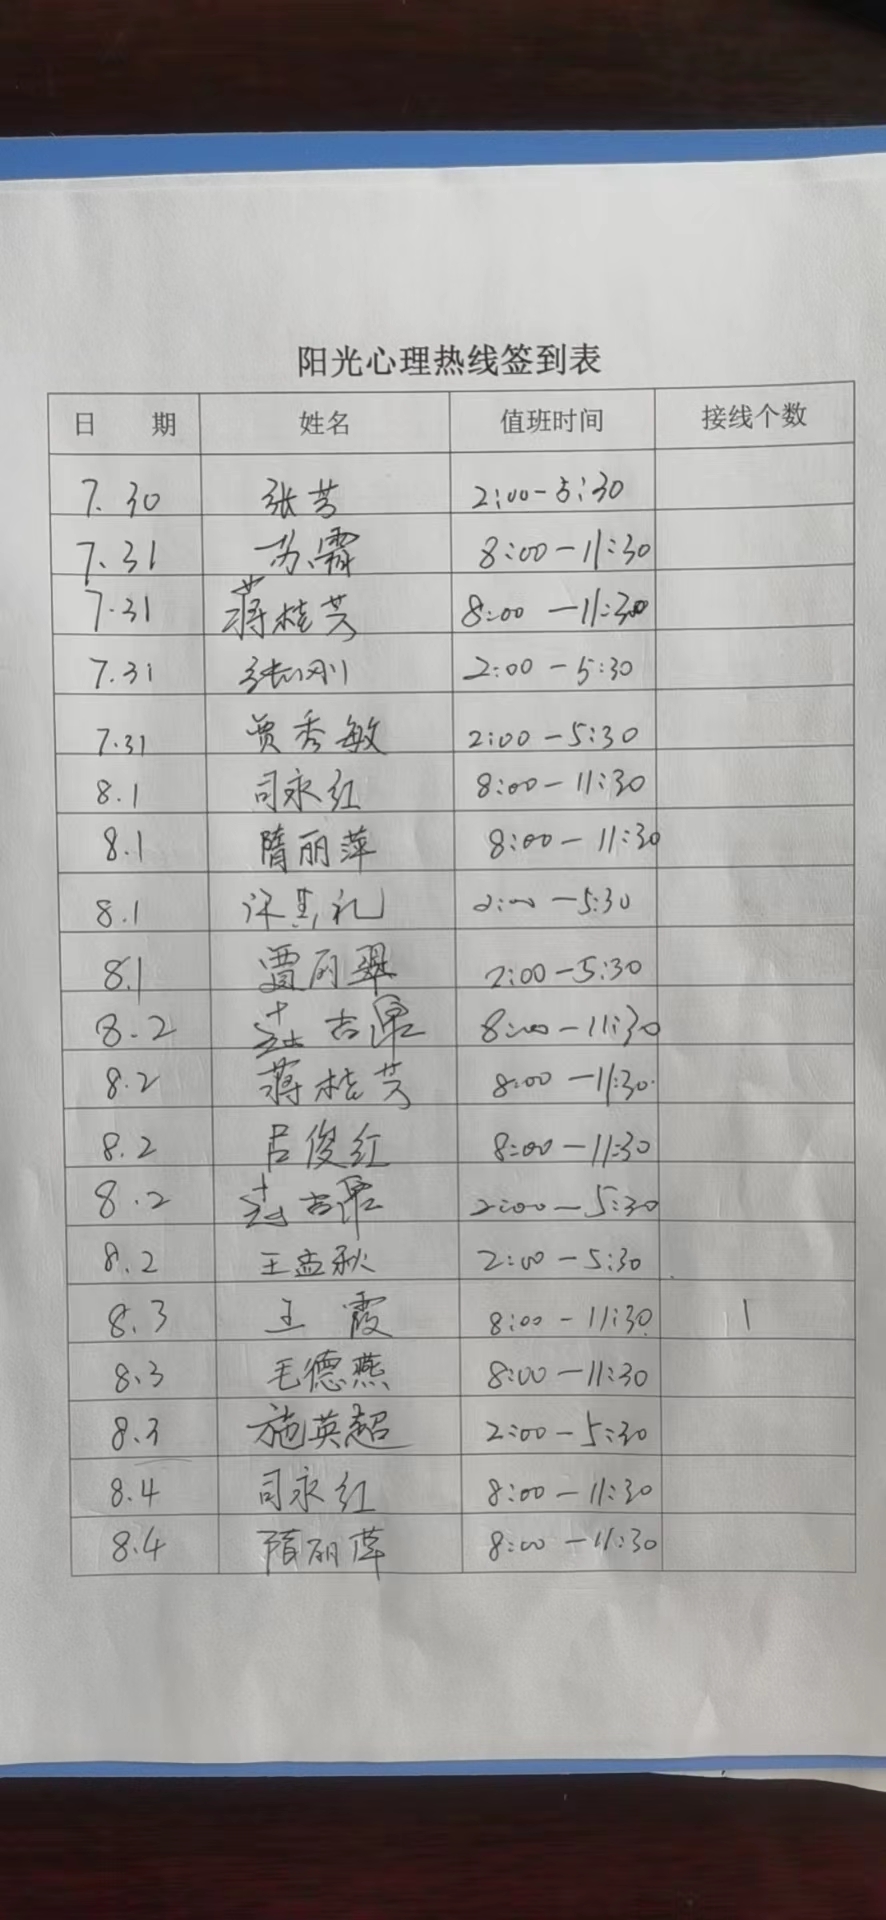 阳光心理热线签到表
日 期 姓名 值班时间 接线个数
7.30 张芳 2:00-5:30
7.31 苏霞 8:00-11:30
7.31 蒋桂芳 8:00-11:30
7.31 张刚 2:00-5:30
7.31 贾秀敏 2:00-5:30
8.1 司永红 8:00-11:30
8.1 隋丽萍 8:00-11:30
8.1 2:00-5:30
8.1 贾丽翠 2:00-5:30
8.2 8:00-11:30
8.2 蒋桂芳 8:00-11:30
8.2 吕俊红 8:00-11:30
8.2 2:00-5:30
8.2 王孟秋 2:00-5:30
8.3 王霞 8:00-11:30 1
8.3 毛德燕 8:00-11:30
8.3 施英超 2:00-5:30
8.4 司永红 8:00-11:30
8.4 隋丽萍 8:00-11:30